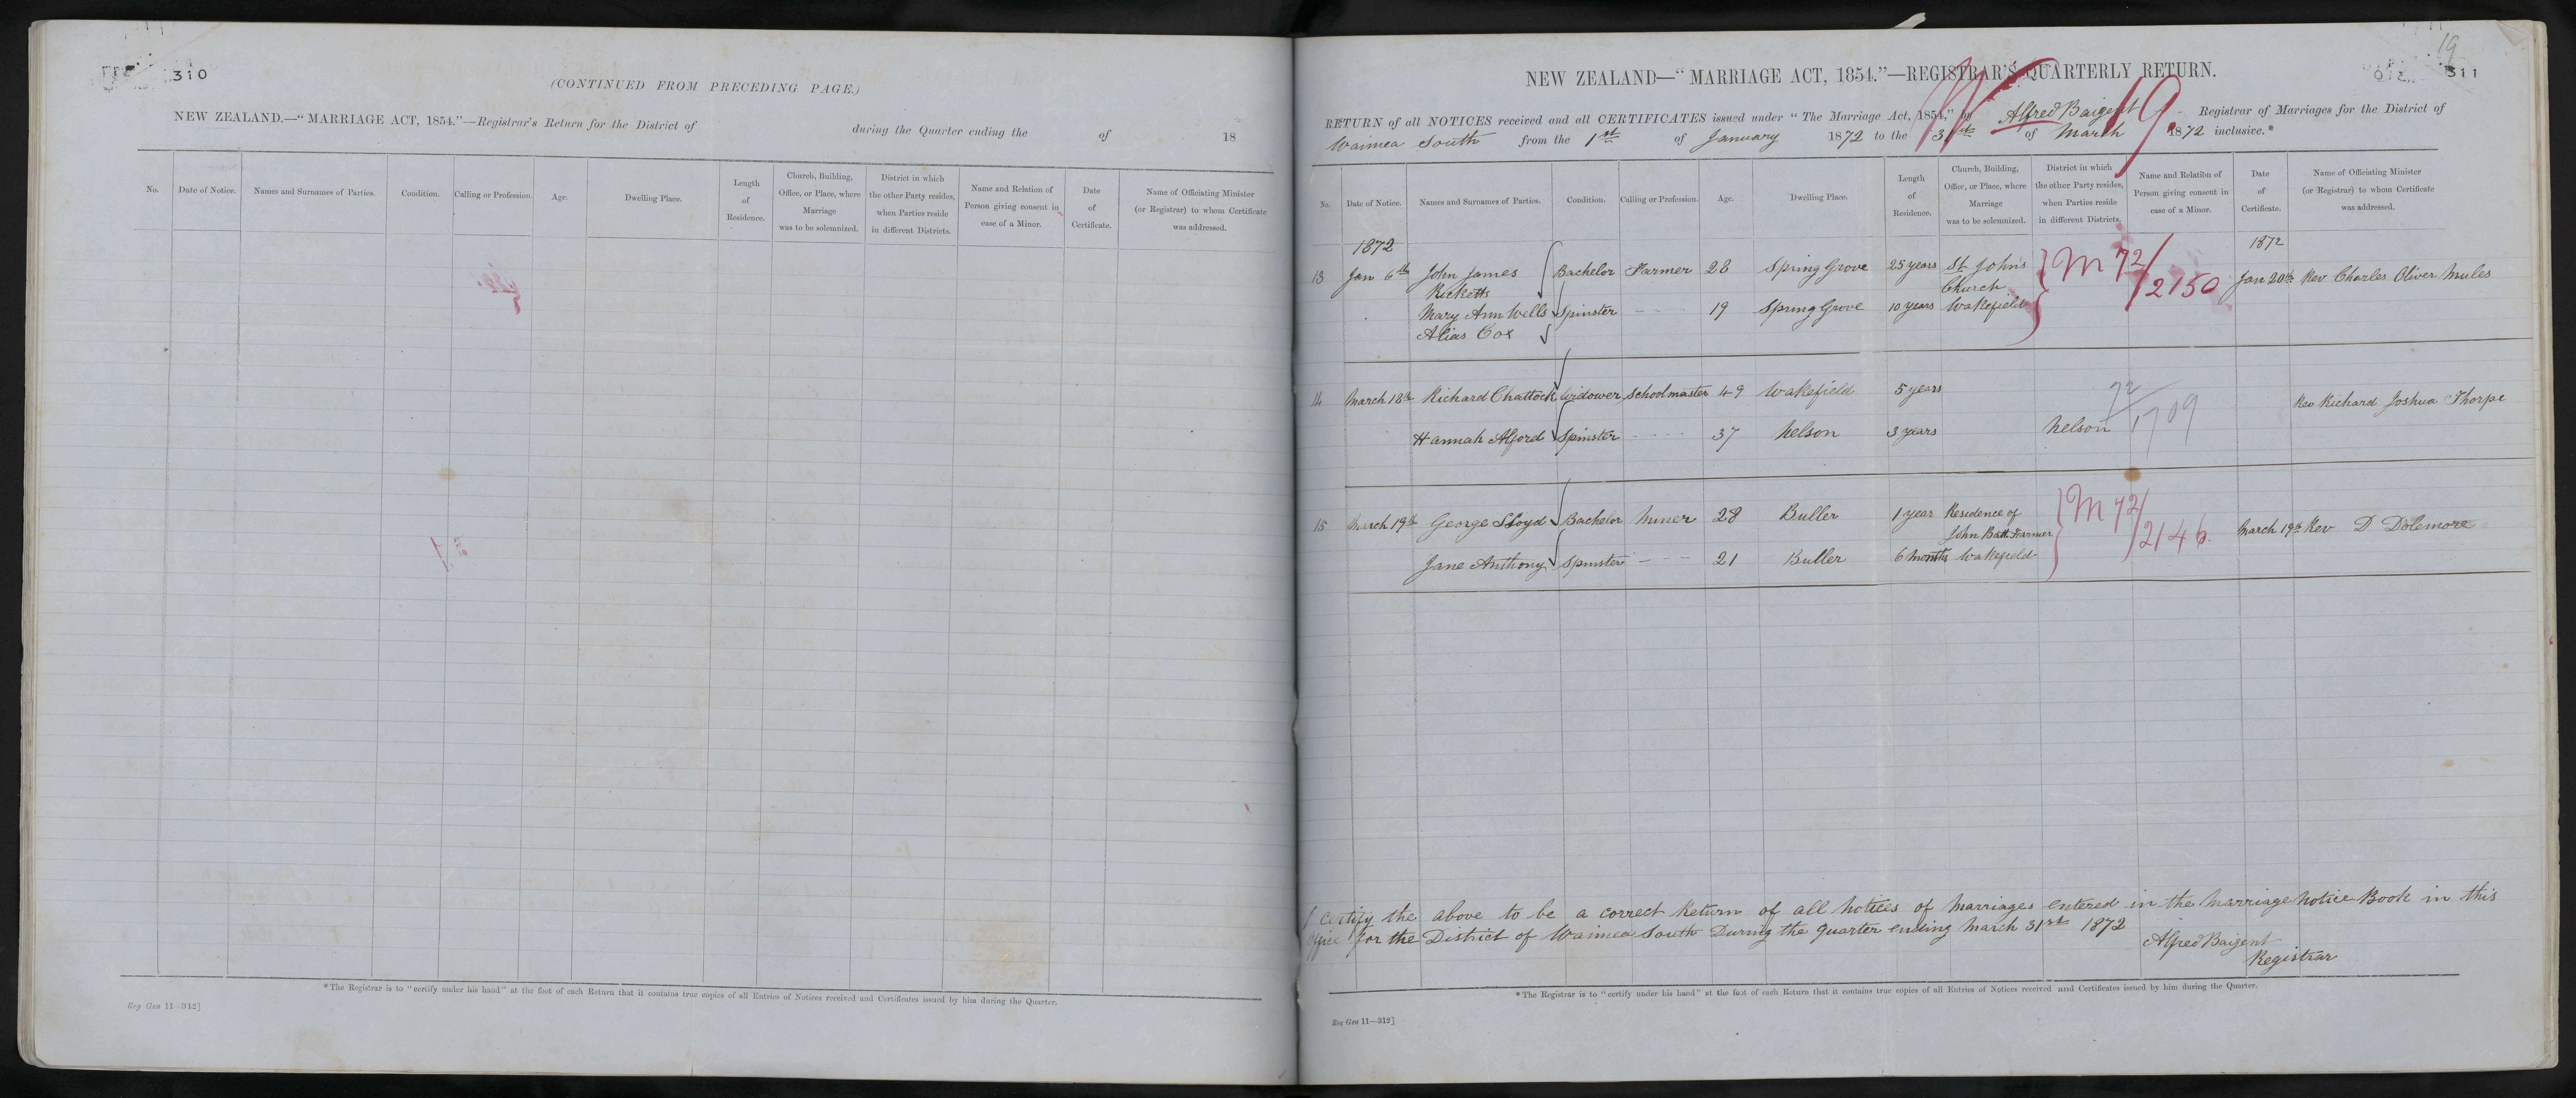 310
(CONTINUED FROM PRECEDING PAGE.)
NEW ZEALAND.—“MARRIAGE ACT, 1854.”—Registrar's Return for the District of during the Quarter ending the of 18
No. Date of Notice. Names and Surnames of Parties. Condition. Calling or Profession. Age. Dwelling Place. Length of Residence. Church, Building, Office, or Place, where Marriage was to be solemnized. District in which the other Party resides, when Parties reside in different Districts. Name and Relation of Person giving consent in case of a Minor. Date of Certificate. Name of Officiating Minister (or Registrar) to whom Certificate was addressed.
*The Registrar is to “certify under his hand” at the foot of each Return that it contains true copies of all Entries of Notices received and Certificates issued by him during the Quarter.
Reg Gen 11—312]
19
311
NEW ZEALAND—“MARRIAGE ACT, 1854.”—REGISTRAR'S QUARTERLY RETURN.
19.
RETURN of all NOTICES received and all CERTIFICATES issued under “The Marriage Act, 1854,” by Alfred Baigent Registrar of Marriages for the District of
Waimea South from the 1st of January 1872 to the 31st of March 1872 inclusive.*
No. Date of Notice. Names and Surnames of Parties. Condition. Calling or Profession. Age. Dwelling Place. Length of Residence. Church, Building, Office, or Place, where Marriage was to be solemnized. District in which the other Party resides, when Parties reside in different Districts. Name and Relation of Person giving consent in case of a Minor. Date of Certificate. Name of Officiating Minister (or Registrar) to whom Certificate was addressed.
1872 1872
13 Jan 6th John James Bachelor Farmer 28 Spring Grove 25 years St John's M 72/2150 Jan 20th Rev Charles Oliver Mules
Ricketts Church
Mary Ann Wells Spinster 19 Spring Grove 10 years Wakefield
Alias Cox
14 March 18th Richard Chattock Widower Schoolmaster 49 Wakefield 5 years 72/1709 Rev Richard Joshua Thorpe
Hannah Alford Spinster 37 Nelson 3 years Nelson
15 March 19th George Lloyd Bachelor Miner 28 Buller 1 year Residence of M 72/2146. March 19th Rev D Dolemore
John Batt Farmer
Jane Anthony Spinster 21 Buller 6 months Wakefield
I certify the above to be a correct Return of all Notices of Marriages entered in the Marriage Notice Book in this
Office for the District of Waimea South During the quarter ending March 31st 1872
Alfred Baigent
Registrar
*The Registrar is to “certify under his hand” at the foot of each Return that it contains true copies of all Entries of Notices received and Certificates issued by him during the Quarter.
Reg Gen 11—312]